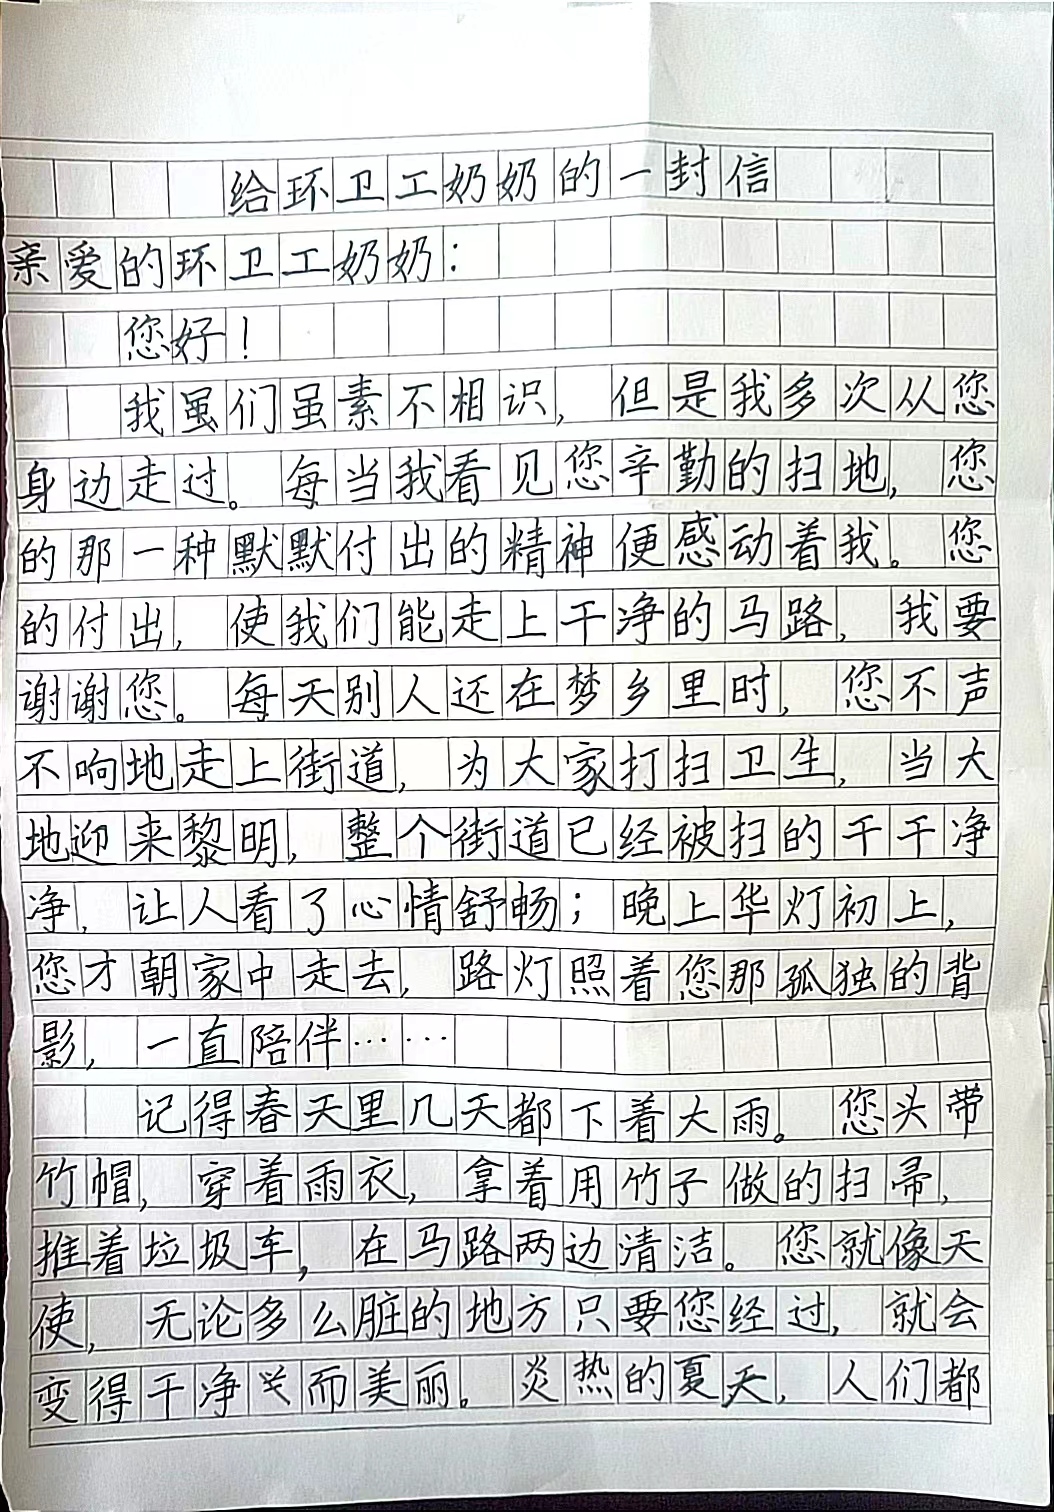 给环卫工奶奶的一封信
亲爱的环卫工奶奶：
您好！
我虽们虽素不相识，但是我多次从您
身边走过。每当我看见您辛勤的扫地，您
的那一种默默付出的精神便感动着我。您
的付出，使我们能走上干净的马路，我要
谢谢您。每天别人还在梦乡里时，您不声
不响地走上街道，为大家打扫卫生，当大
地迎来黎明，整个街道已经被扫的干干净
净，让人看了心情舒畅；晚上华灯初上，
您才朝家中走去，路灯照着您那孤独的背
影，一直陪伴……
记得春天里几天都下着大雨。您头带
竹帽，穿着雨衣，拿着用竹子做的扫帚，
推着垃圾车，在马路两边清洁。您就像天
使，无论多么脏的地方只要您经过，就会
变得干净而美丽。炎热的夏天，人们都